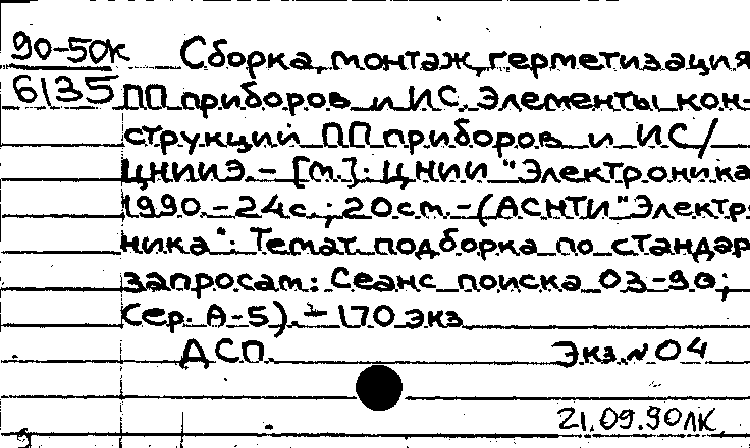 90-50к Сборка, монтаж, герметизация
6135 ПП приборов и ИС. Элементы кон-
струкций ПП приборов и ИС/
ЦНИИЭ. - [М.]: ЦНИИ "Электроника
1990. - 24с.; 20см. - (АСНТИ "Электро
ника": Темат. подборка по стандар
запросам: Сеанс поиска 03-90;
Сер. А-5). - 170 экз
ДСП. Экз. № 04
21.09.90 ЛК.